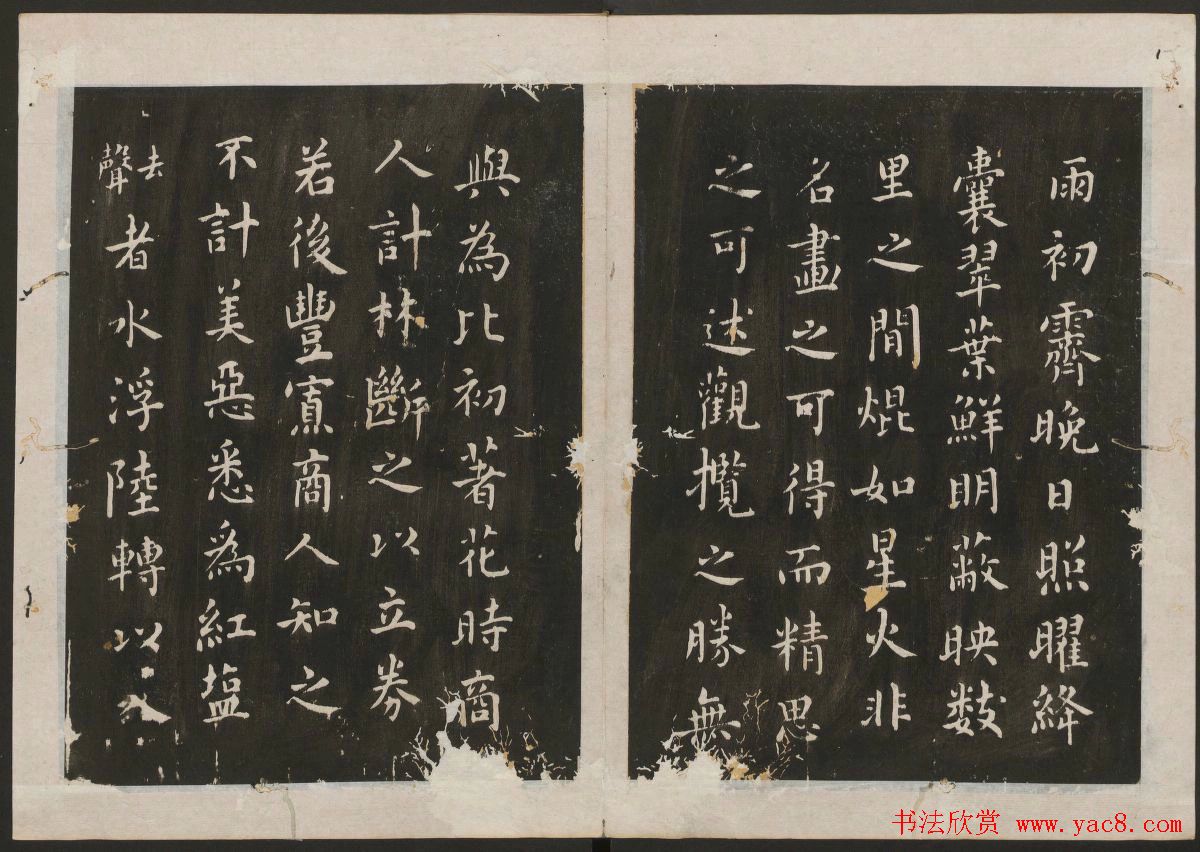 雨初霽晚日照曜絳
囊翠葉鮮明蔽映数
里之間焜如星火非
名畫之可得而精思
之可述觀攬之勝無
與為比初著花時商
人計林斷之以立券
若後豐寡商人知之
不計美惡悉為紅塩
去聲者水浮陸轉以入
书法欣赏 www.yac8.com